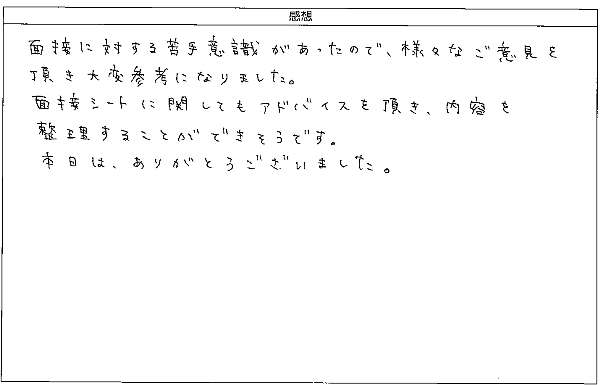 感想
面接に対する苦手意識があったので、様々なご意見を
頂き大変参考になりました。
面接シートに関してもアドバイスを頂き、内容を
整理することができそうです。
本日は、ありがとうございました。